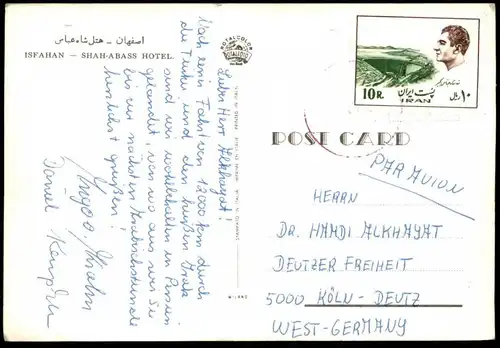 اصفهان ـ هتل شاه عباس
ISFAHAN — SHAH-ABASS HOTEL.
ROTALCOLOR
Lieber Herr Alkhayat!
Nach einer Fahrt von 12000 km durch
die Türkei und den heißen Irak
sind wir wohlbehalten in Persien
gelandet, von wo aus wir Sie
bis zur nächsten Arabischstunde
herzlichst grüßen!
Daniel
پست ایران
10R.
IRAN
۱۰ ریال
POST CARD
PAR AVION
HERRN
DR. HAMDI ALKHAYAT
DEUTZER FREIHEIT
5000 KÖLN - DEUTZ
WEST-GERMANY